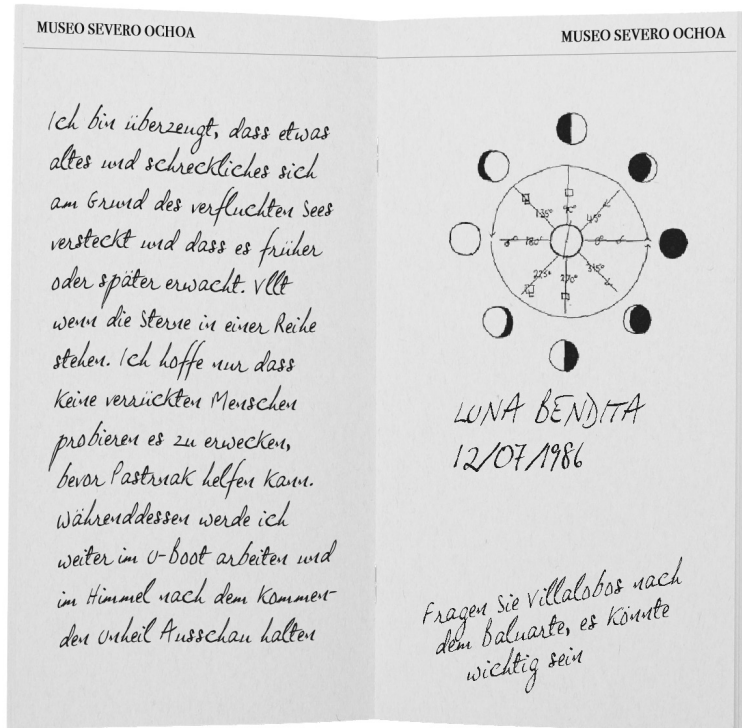 MUSEO SEVERO OCHOA
Ich bin überzeugt, dass etwas
altes und schreckliches sich
am Grund des verfluchten Sees
versteckt und dass es früher
oder später erwacht. Vllt
wenn die Sterne in einer Reihe
stehen. Ich hoffe nur dass
keine verrückten Menschen
probieren es zu erwecken,
bevor Pastrnak helfen kann.
Währenddessen werde ich
weiter im U-Boot arbeiten und
im Himmel nach dem kommen-
den Unheil Ausschau halten
MUSEO SEVERO OCHOA
135°
45°
180
225°
270°
315°
LUNA BENDITA
12/07/1986
Fragen Sie Villalobos nach
dem Baluarte, es könnte
wichtig sein